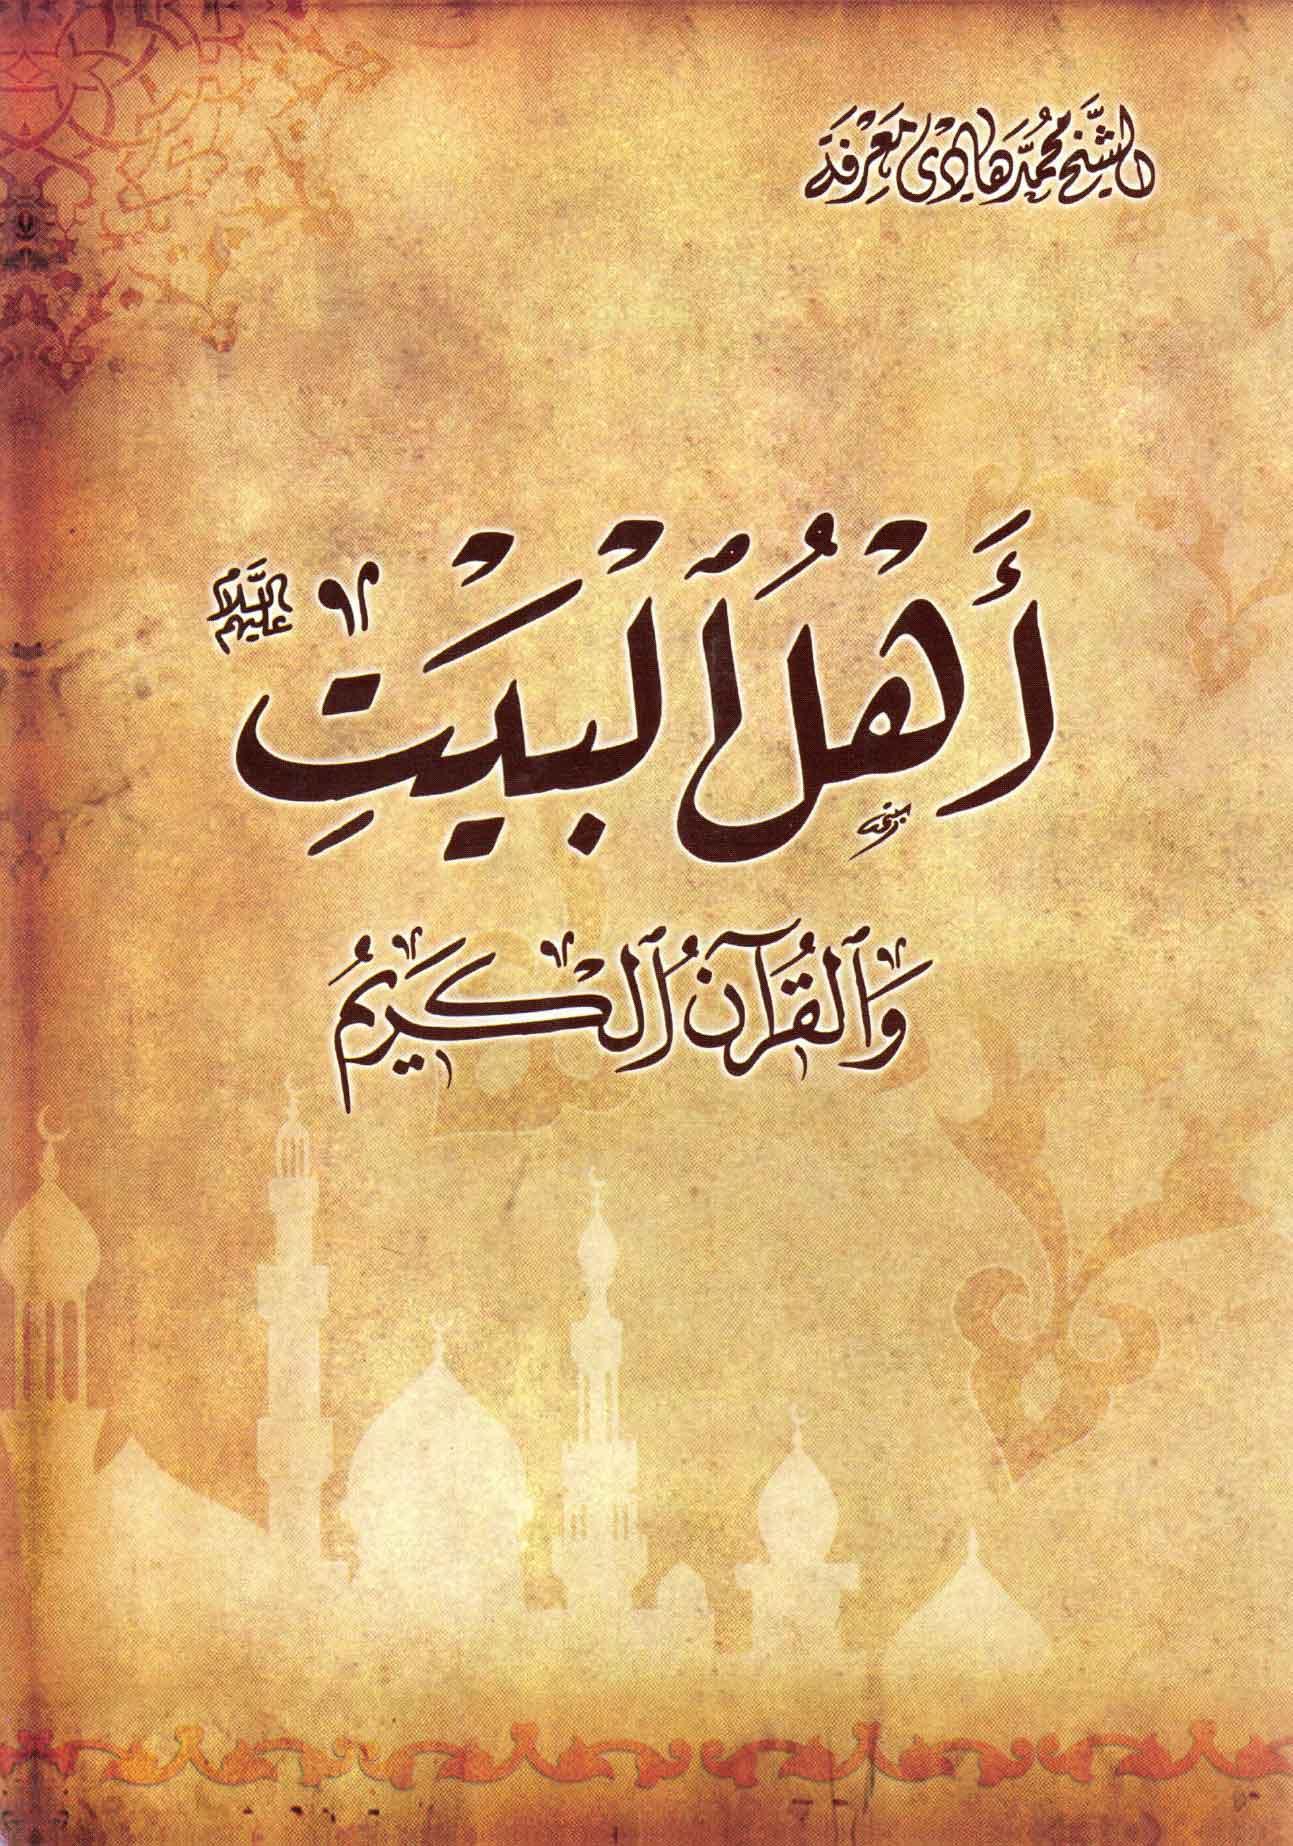 الشيخ محمد هادي معرفة
أَهْلُ ٱلْبَيْتِ عليهم السلام
وَٱلْقُرْآنُ ٱلْكَرِيمُ